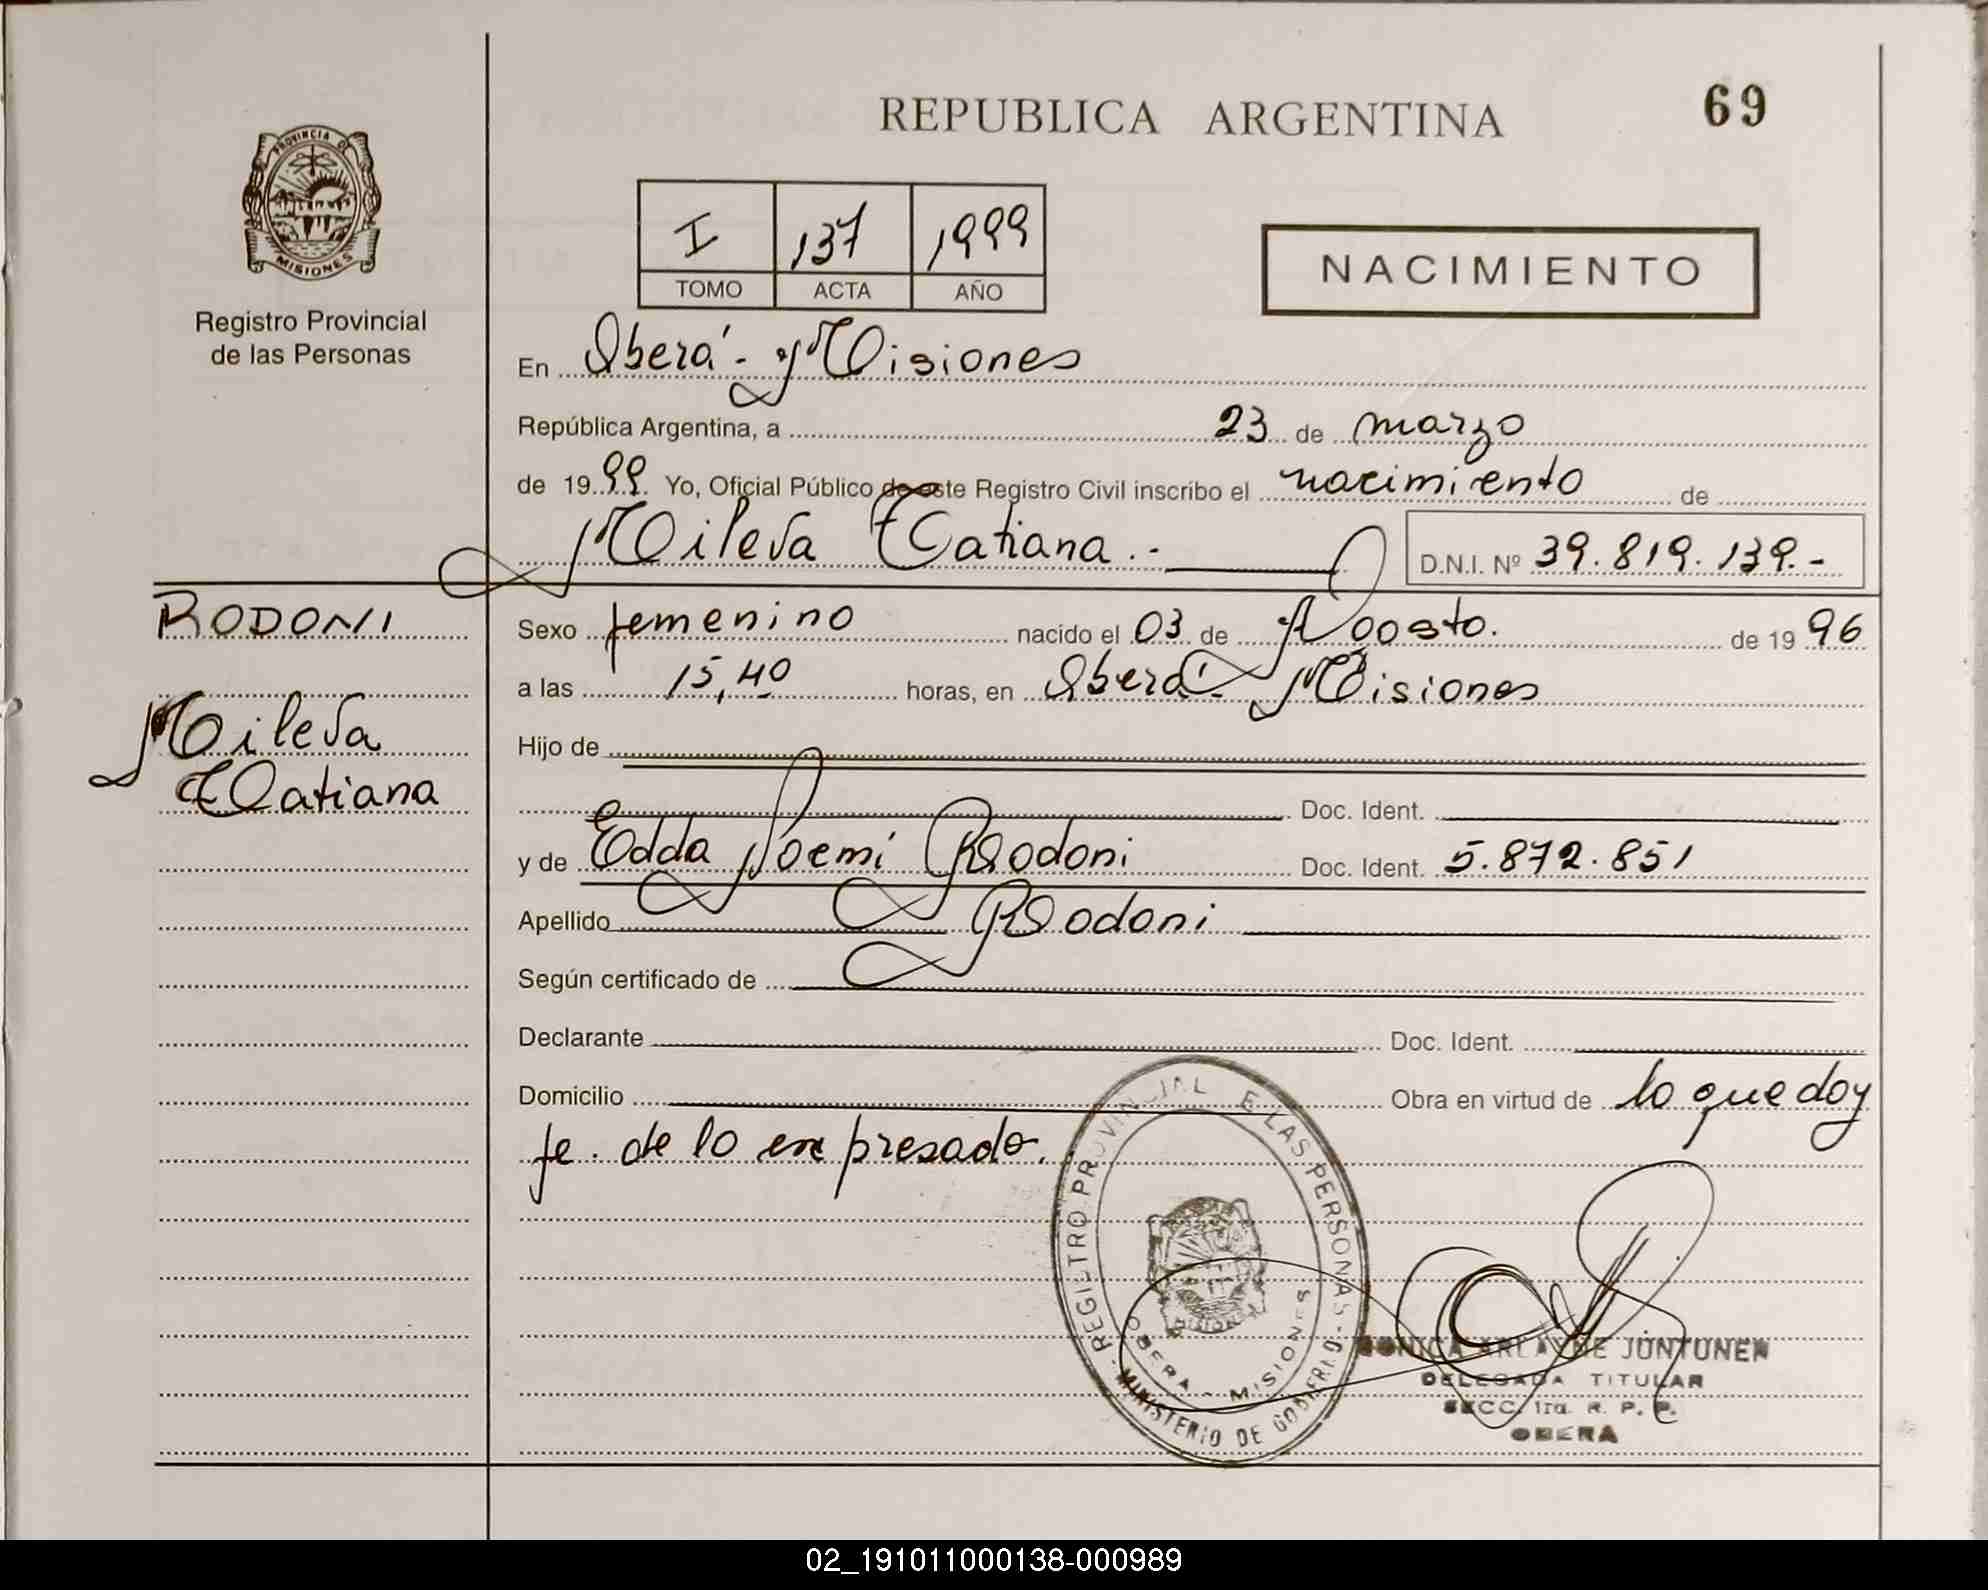 REPUBLICA ARGENTINA
69
PROVINCIA DE
MISIONES
Registro Provincial
de las Personas
I 137 1999
TOMO ACTA AÑO
NACIMIENTO
En Oberá - Misiones
República Argentina, a 23 de marzo
de 1999 Yo, Oficial Público de este Registro Civil inscribo el nacimiento de
Mileva Tatiana .-
D.N.I. Nº 39.819.139.-
RODONI
Mileva
Tatiana
Sexo femenino nacido el 03 de Agosto. de 1996
a las 15,40 horas, en Oberá - Misiones
Hijo de
Doc. Ident.
y de Edda Noemí Rodoni Doc. Ident. 5.872.851
Apellido Rodoni
Según certificado de
Declarante Doc. Ident.
Domicilio Obra en virtud de lo que doy
fe. de lo expresado.
REGISTRO PROVINCIAL DE LAS PERSONAS
OBERA - MISIONES
MINISTERIO DE GOBIERNO
MONICA ARLAYNE JUNTUNEN
DELEGADA TITULAR
SECC. 1ra. R. P. P.
OBERA
02_191011000138-000989